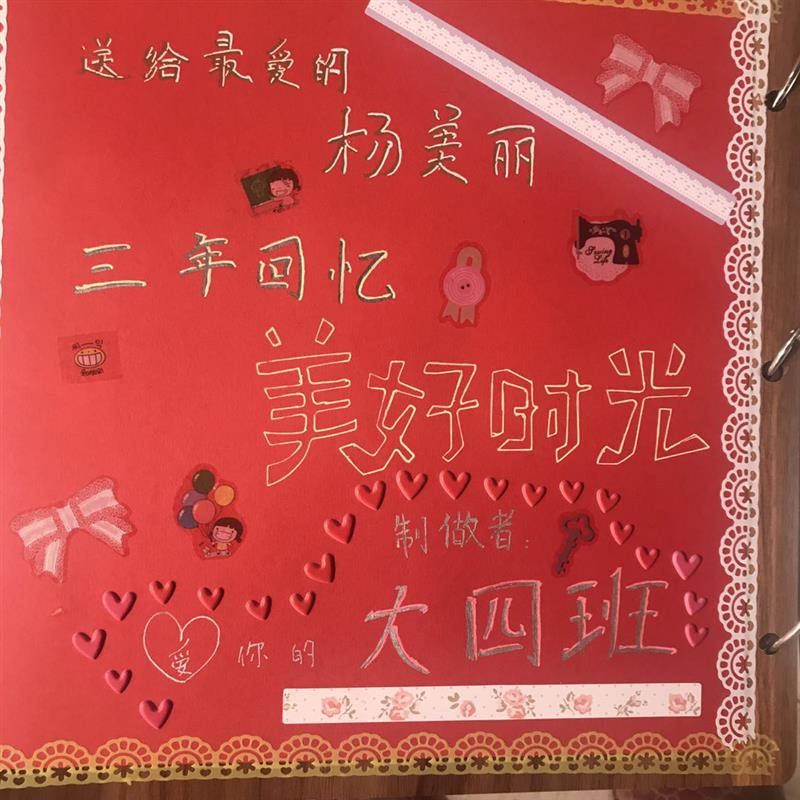 送给最爱的
杨美丽
三年回忆
Sewing
Life
美好时光
制做者:
大四班
爱你的